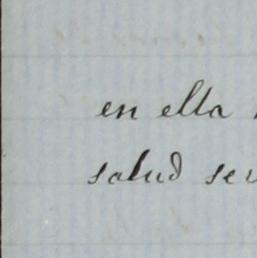 en ella
salud